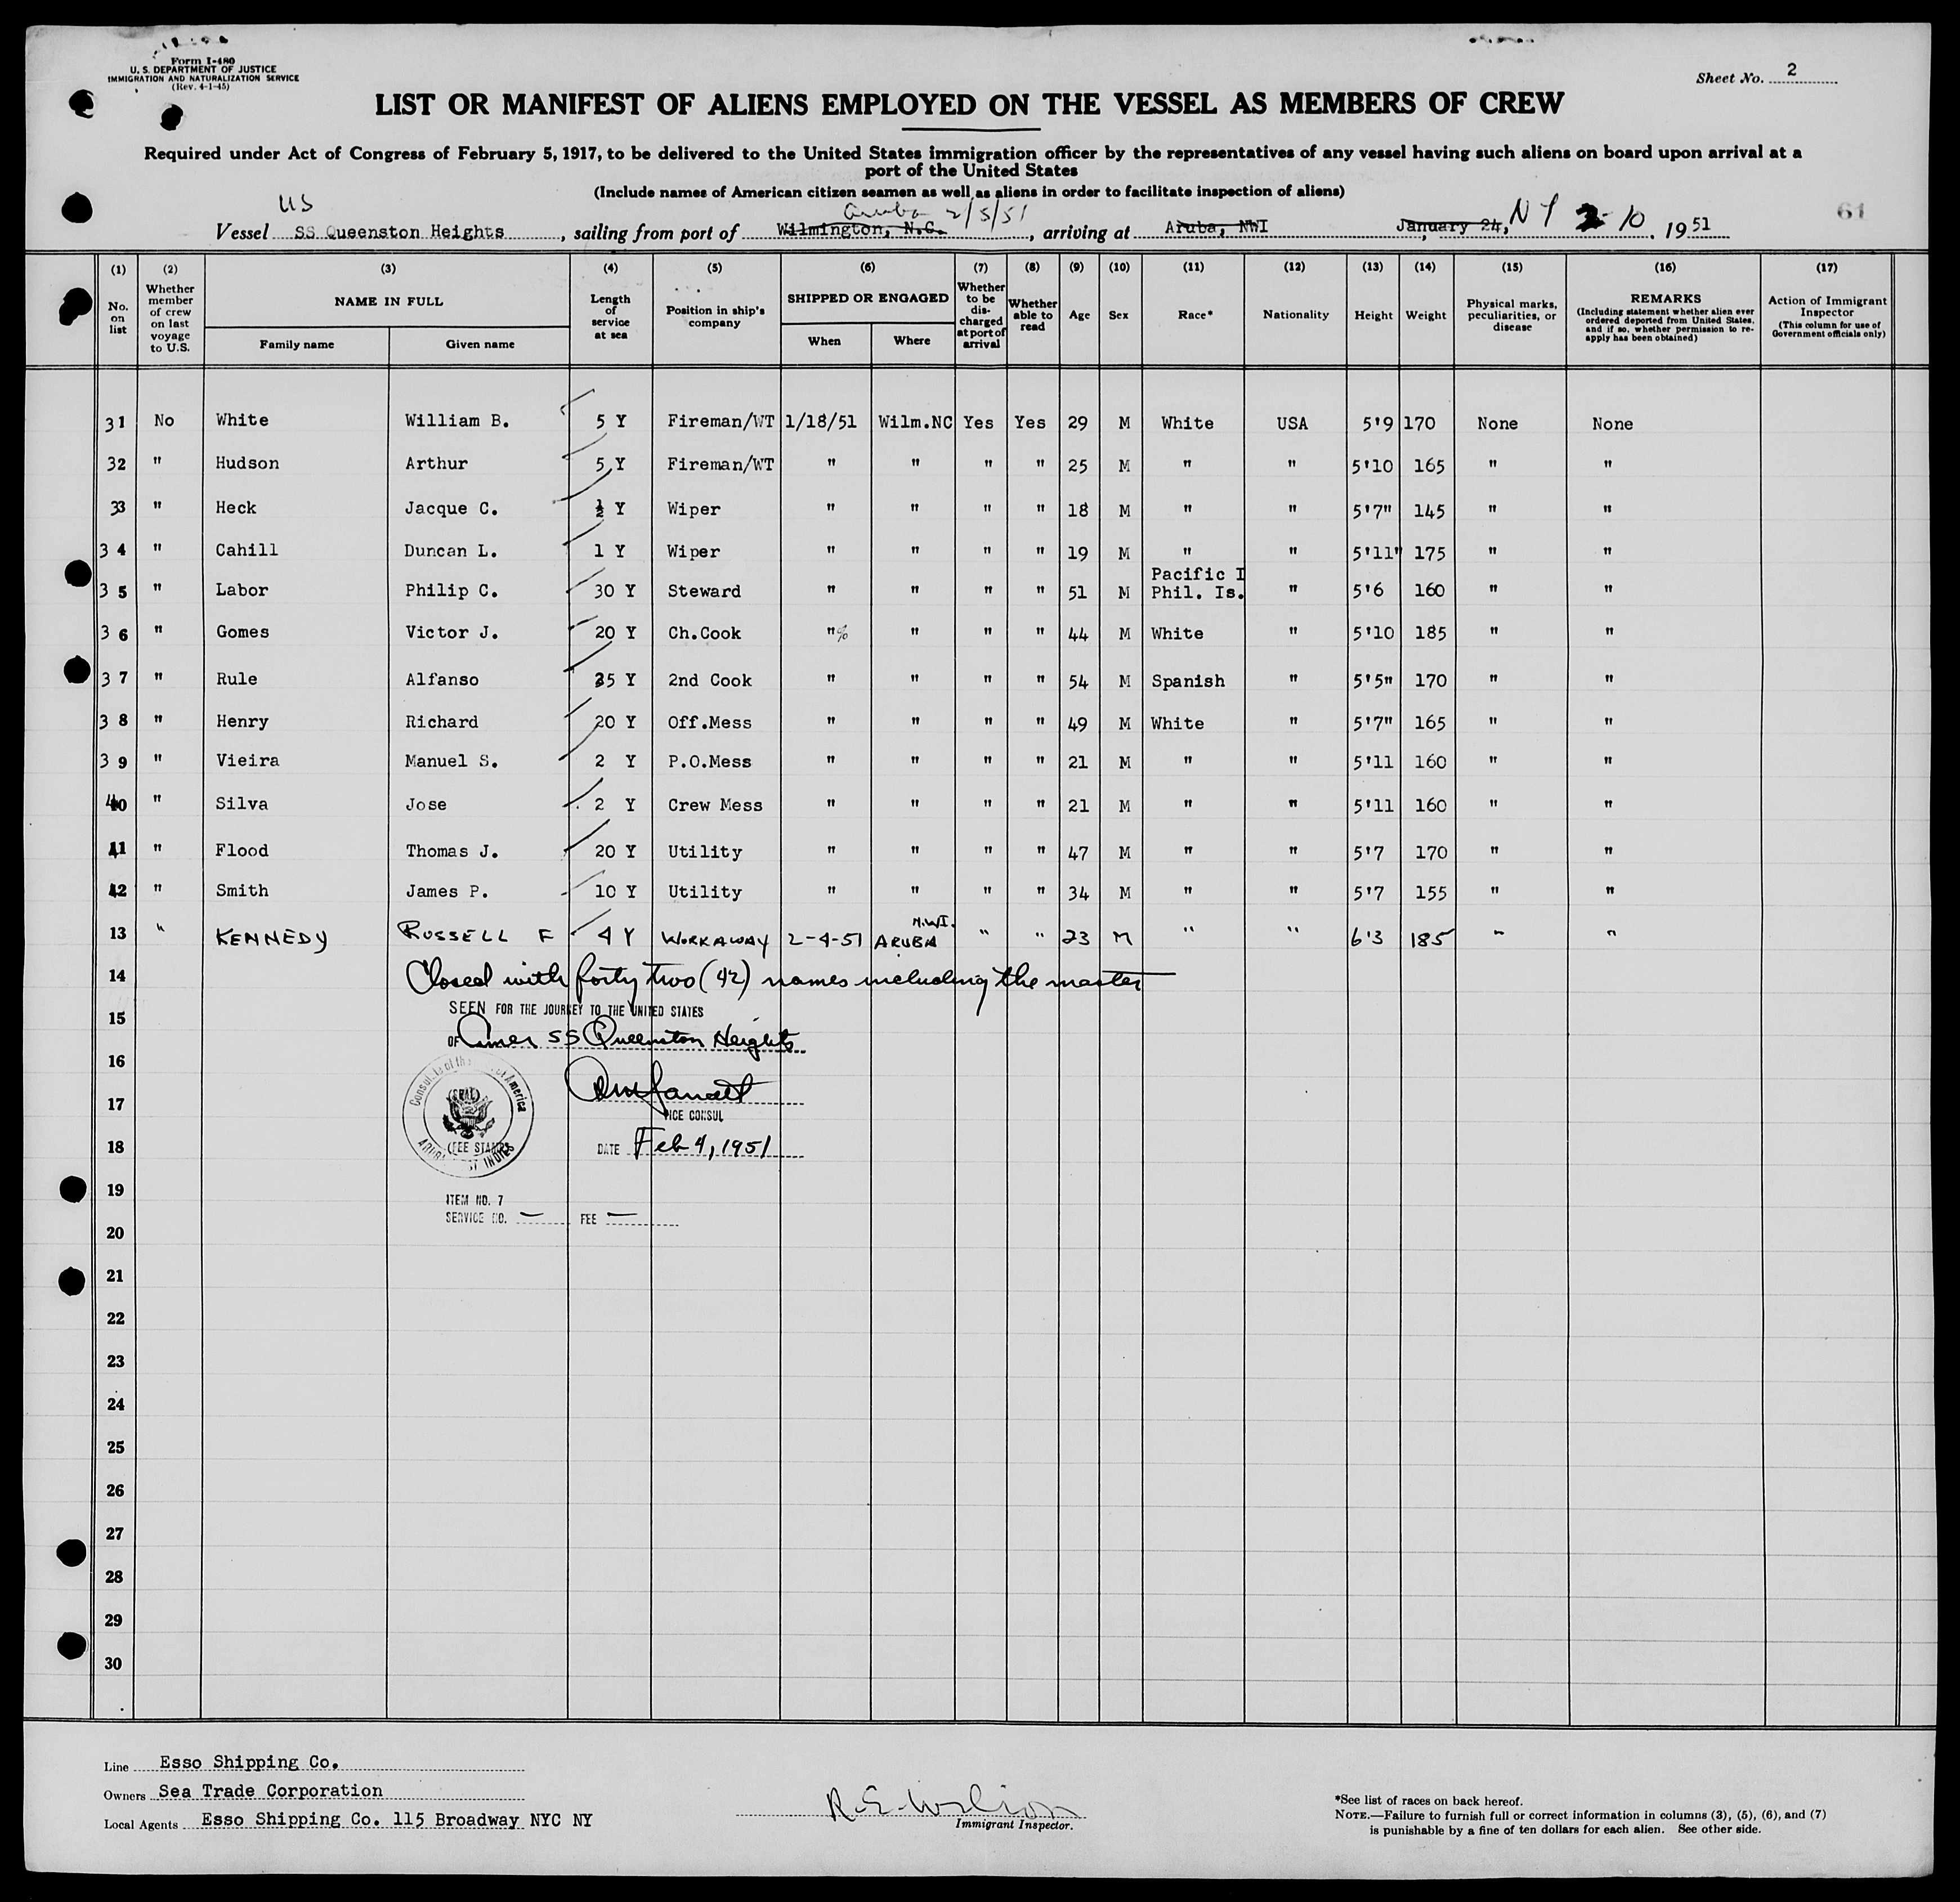 Form I-480
U. S. DEPARTMENT OF JUSTICE
IMMIGRATION AND NATURALIZATION SERVICE
(Rev. 4-1-45)
Sheet No. 2
LIST OR MANIFEST OF ALIENS EMPLOYED ON THE VESSEL AS MEMBERS OF CREW
Required under Act of Congress of February 5, 1917, to be delivered to the United States immigration officer by the representatives of any vessel having such aliens on board upon arrival at a
port of the United States
(Include names of American citizen seamen as well as aliens in order to facilitate inspection of aliens)
US Aruba 2/5/51 NY 2-10 61
Vessel SS Queenston Heights, sailing from port of Wilmington, N.C., arriving at Aruba, NWI January 24, 1951
(1) (2) (3) (4) (5) (6) (7) (8) (9) (10) (11) (12) (13) (14) (15) (16) (17)
No. on list
Whether member of crew on last voyage to U.S.
NAME IN FULL
Family name
Given name
Length of service at sea
Position in ship's company
SHIPPED OR ENGAGED
When
Where
Whether to be discharged at port of arrival
Whether able to read
Age
Sex
Race*
Nationality
Height
Weight
Physical marks, peculiarities, or disease
REMARKS
(Including statement whether alien ever ordered deported from United States, and if so, whether permission to re-apply has been obtained)
Action of Immigrant Inspector
(This column for use of Government officials only)
31 No White William B. 5 Y Fireman/WT 1/18/51 Wilm.NC Yes Yes 29 M White USA 5'9 170 None None
32 " Hudson Arthur 5 Y Fireman/WT " " " " 25 M " " 5'10 165 " "
33 " Heck Jacque C. ½ Y Wiper " " " " 18 M " " 5'7" 145 " "
34 " Cahill Duncan L. 1 Y Wiper " " " " 19 M " " 5'11" 175 " "
Pacific I
35 " Labor Philip C. 30 Y Steward " " " " 51 M Phil. Is. " 5'6 160 " "
36 " Gomes Victor J. 20 Y Ch.Cook " " " " 44 M White " 5'10 185 " "
37 " Rule Alfanso 35 Y 2nd Cook " " " " 54 M Spanish " 5'5" 170 " "
38 " Henry Richard 20 Y Off.Mess " " " " 49 M White " 5'7" 165 " "
39 " Vieira Manuel S. 2 Y P.O.Mess " " " " 21 M " " 5'11 160 " "
40 " Silva Jose 2 Y Crew Mess " " " " 21 M " " 5'11 160 " "
41 " Flood Thomas J. 20 Y Utility " " " " 47 M " " 5'7 170 " "
42 " Smith James P. 10 Y Utility " " " " 34 M " " 5'7 155 " "
N.W.I.
13 " KENNEDY RUSSELL F 4 Y WORKAWAY 2-4-51 ARUBA " " 23 M " " 6'3 185 " "
14 Closed with forty two (42) names including the master
SEEN FOR THE JOURNEY TO THE UNITED STATES
15
OF Amer SS Queenston Heights
16
Consulate of the America
(SEAL)
17
VICE CONSUL
(FEE STAMP)
18
DATE Feb 4, 1951
19
ITEM NO. 7
SERVICE NO. — FEE —
20
21
22
23
24
25
26
27
28
29
30
Line Esso Shipping Co.
Owners Sea Trade Corporation
Local Agents Esso Shipping Co. 115 Broadway NYC NY
R.E. Wilson
Immigrant Inspector.
*See list of races on back hereof.
NOTE.—Failure to furnish full or correct information in columns (3), (5), (6), and (7)
is punishable by a fine of ten dollars for each alien. See other side.